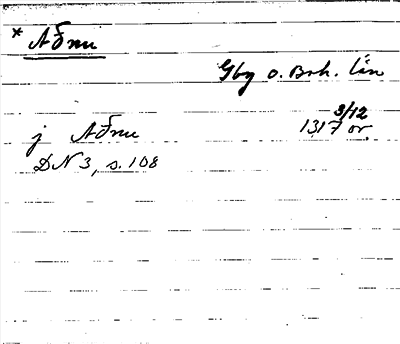 * Aðnu
Gbg o. Boh. län
3/12
j Aðnu 1317 or.
DN 3, s. 108